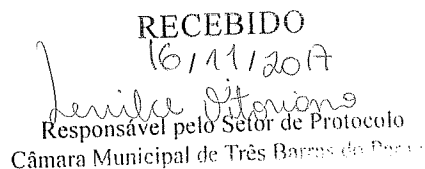 RECEBIDO
16/11/2017
Lenilce Vitoriano
Responsável pelo Setor de Protocolo
Câmara Municipal de Três Barras do